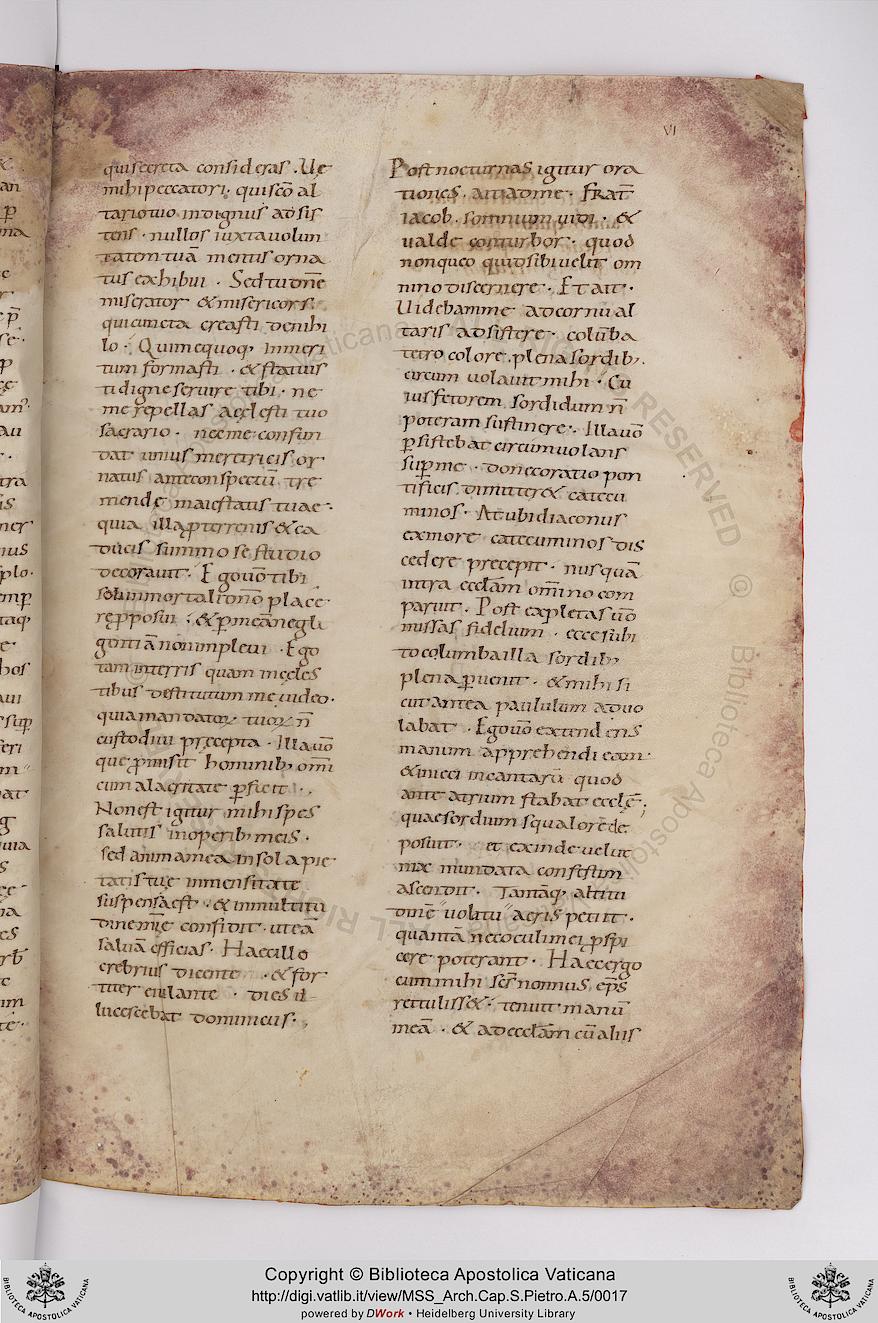 VI
qui secreta consideras . Ue
mihi peccatori . qui sc̄o al
tario tuo indignus adsis
tens . nullos iuxta uolun
tatem tuā mentis orna
tus exhibui . Sed tu dn̄e
miserator & misericors .
qui cuncta creasti de nihi
lo . Qui mequoq; inmeri
tum formasti . & statuis
ti digne seruire tibi . ne
me repellas a celesti tuo
sacrario . nec me confun
dat unius meretricis or
natus ante conspectū tre
mendę maiestatis tuae .
quia illa p̱ terrenis & ca
ducis summo se studio
decorauit . Ego uō tibi
soli inmortali dn̄o place
re p̱posui . & p̱ meā negli
gentiā non impleui . Ego
tam in terris quam in celes
tibus destitutum me uideo .
quia mandatoꝝ tuoꝝ n̄
custodiui pręcepta . Illa uō
que p̱misit hominib; om̄i
cum alacritate p̱ficit .
Non est igitur mihi spes
salutis in operib; meis .
sed anima mea in sola pie
tatis tuę inmensitate
suspensa est . & in multitu
dine mię confidit . ut eā
saluā efficias . Haec illo
crebrius dicente . & for
titer eiulante . dies il
lucescebat dominicus .
Post nocturnas igitur ora
tiones . ait ad me . Frat̄
iacob . somnium uidi . &
ualde conturbor . quod
non queo quid sibi uelit om
nino discernere . Et ait .
Uidebam me ad cornu al
taris adsistere . colūba
tetro colore . plena sordib;
circum uolauit mihi . Cu
ius fetorem sordidum n̄
poteram sustinere . Illa uō
p̱sistebat circumuolans
sup̱ me . donec oratio pon
tificis dimitter& catecu
minos . At ubi diaconus
ex more catecuminos dis
cedere precepit . nusquā
intra ecclam om̄ino com
paruit . Post expletas uō
missas fidelium . ecce subi
to columba illa sordib;
plena p̱uenit . & mihi si
cut antea paululum aduo
labat . Ego uō extendens
manum apprehendi eam .
& inieci in cantarū quod
ante atrium stabat ecclę̄ .
quae sordium squalorē de
posuit . et exinde uelut
nix mundata confestim
ascendit . Tantāq; altitu
dinē uolitu aeris petiit .
quantā nec oculi mei p̱spi
cere poterant . Haec ergo
cum mihi ser̄ nonnus ep̄s
retulisset . tenuit manū
meā . & ad ecclām cū aliis
Copyright © Biblioteca Apostolica Vaticana
http://digi.vatlib.it/view/MSS_Arch.Cap.S.Pietro.A.5/0017
powered by DWork • Heidelberg University Library